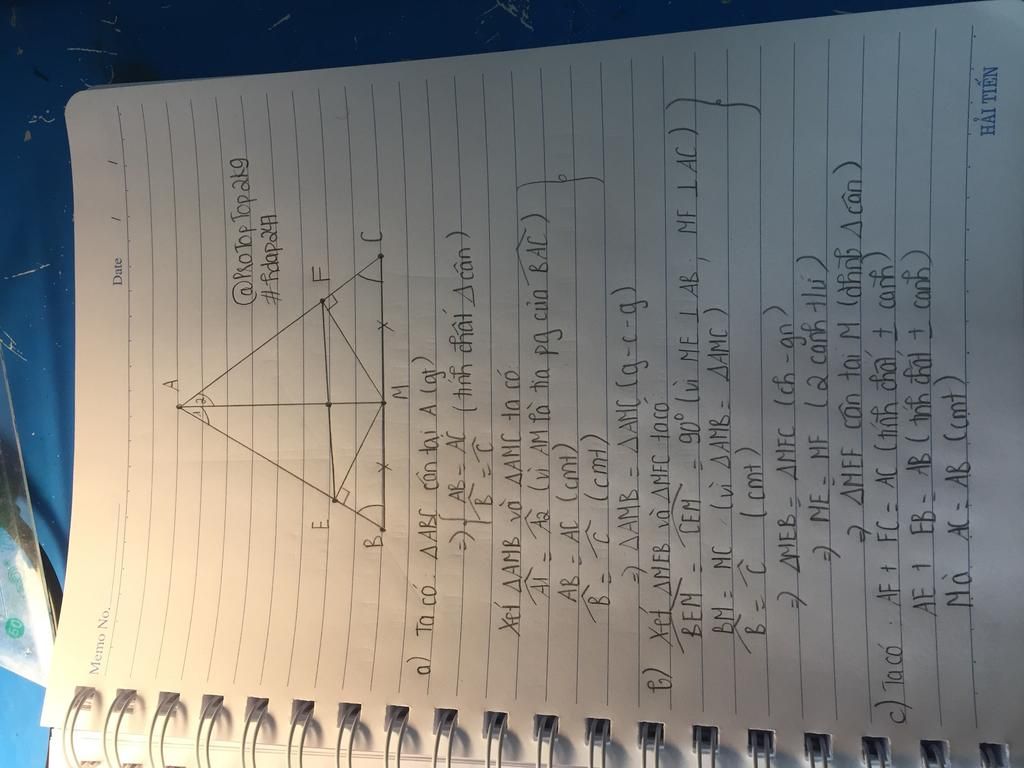 Memo No.
Date / /
@PsoTopTop2k9
#Fdap247
A
1 2
E
F
B
M
C
a) Ta có ΔABC cân tại A (gt)
=> { AB = AC (tính chất Δ cân)
B̂ = Ĉ
Xét ΔAMB và ΔAMC ta có:
Â1 = Â2 (vì AM là tia pg của BAC)
AB = AC (cmt)
B̂ = Ĉ (cmt)
=> ΔAMB = ΔAMC (g-c-g)
b) Xét ΔMEB và ΔMFC ta có
BEM = CFM = 90° (vì ME ⊥ AB, MF ⊥ AC)
BM = MC (vì ΔAMB = ΔAMC)
B̂ = Ĉ (cmt)
=> ΔMEB = ΔMFC (ch-gn)
=> ME = MF (2 cạnh tứ)
=> ΔMEF cân tại M (đhnb Δ cân)
c) Ta có AF + FC = AC (tính chất + cạnh)
AE + EB = AB (tính chất + cạnh)
Mà AC = AB (cmt)
HẢI TIẾN